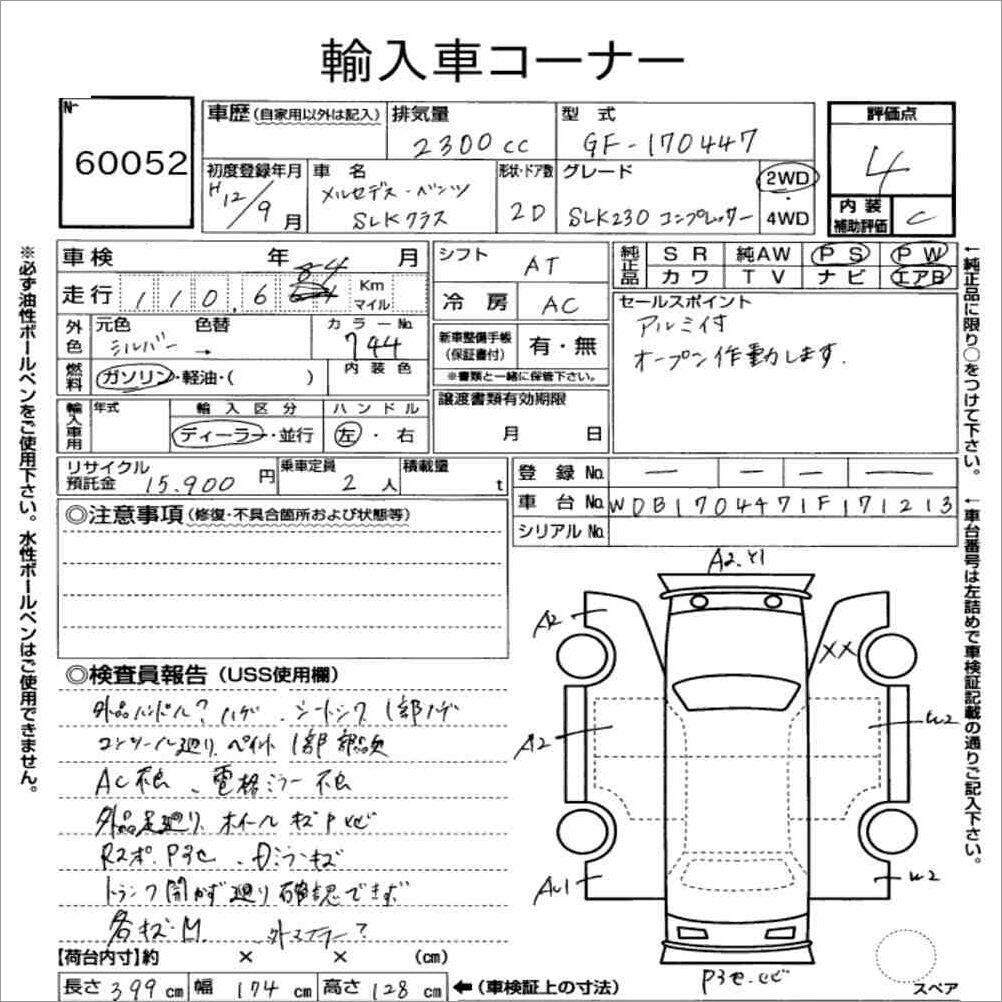 輸入車コーナー
№ 60052
車歴(自家用以外は記入) 排気量 2300cc 型式 GF-170447
評価点 4
内装補助評価 C
初度登録年月 H12/9月
車名 メルセデス-ベンツ SLKクラス
形状・ドア数 2D
グレード SLK230 コンプレッサー
2WD・4WD
車検 年 月
走行 110,684 Km マイル
シフト AT
冷房 AC
純正品 SR 純AW PS PW
カワ TV ナビ エアB
セールスポイント
アルミ付
オープン作動します.
外色 元色 シルバー → 色替 カラーNo. 744
内装色
燃料 ガソリン・軽油・( )
新車整備手帳(保証書付) 有・無
※書類と一緒に保管下さい。
輸入車用 年式 輸入区分 ディーラー・並行 ハンドル 左・右
譲渡書類有効期限 月 日
リサイクル預託金 15.900円 乗車定員 2人 積載量 t
登録No. — — — —
車台No. WDB1704471F171213
シリアルNo.
◎注意事項(修復・不具合箇所および状態等)
◎検査員報告(USS使用欄)
外品ハンドル?ハゲ、シートシワ 1部ハゲ
コンソール廻り ペイント 1部欠
AC不良、電格ミラー不良
外品足廻り ホイール キズ
Rスポ、ミラーキズ
トランク開かず廻り確認できず
各キズ・凹 ?
A2.Y1
A2
XX
A2
W2
AU1
W2
【荷台内寸】約 × × (cm)
長さ 399cm 幅 174cm 高さ 128cm ←(車検証上の寸法)
スペア
※必ず油性ボールペンをご使用下さい。水性ボールペンはご使用できません。
←純正品に限り○をつけて下さい。
←車台番号は左詰めで車検証記載の通りご記入下さい。